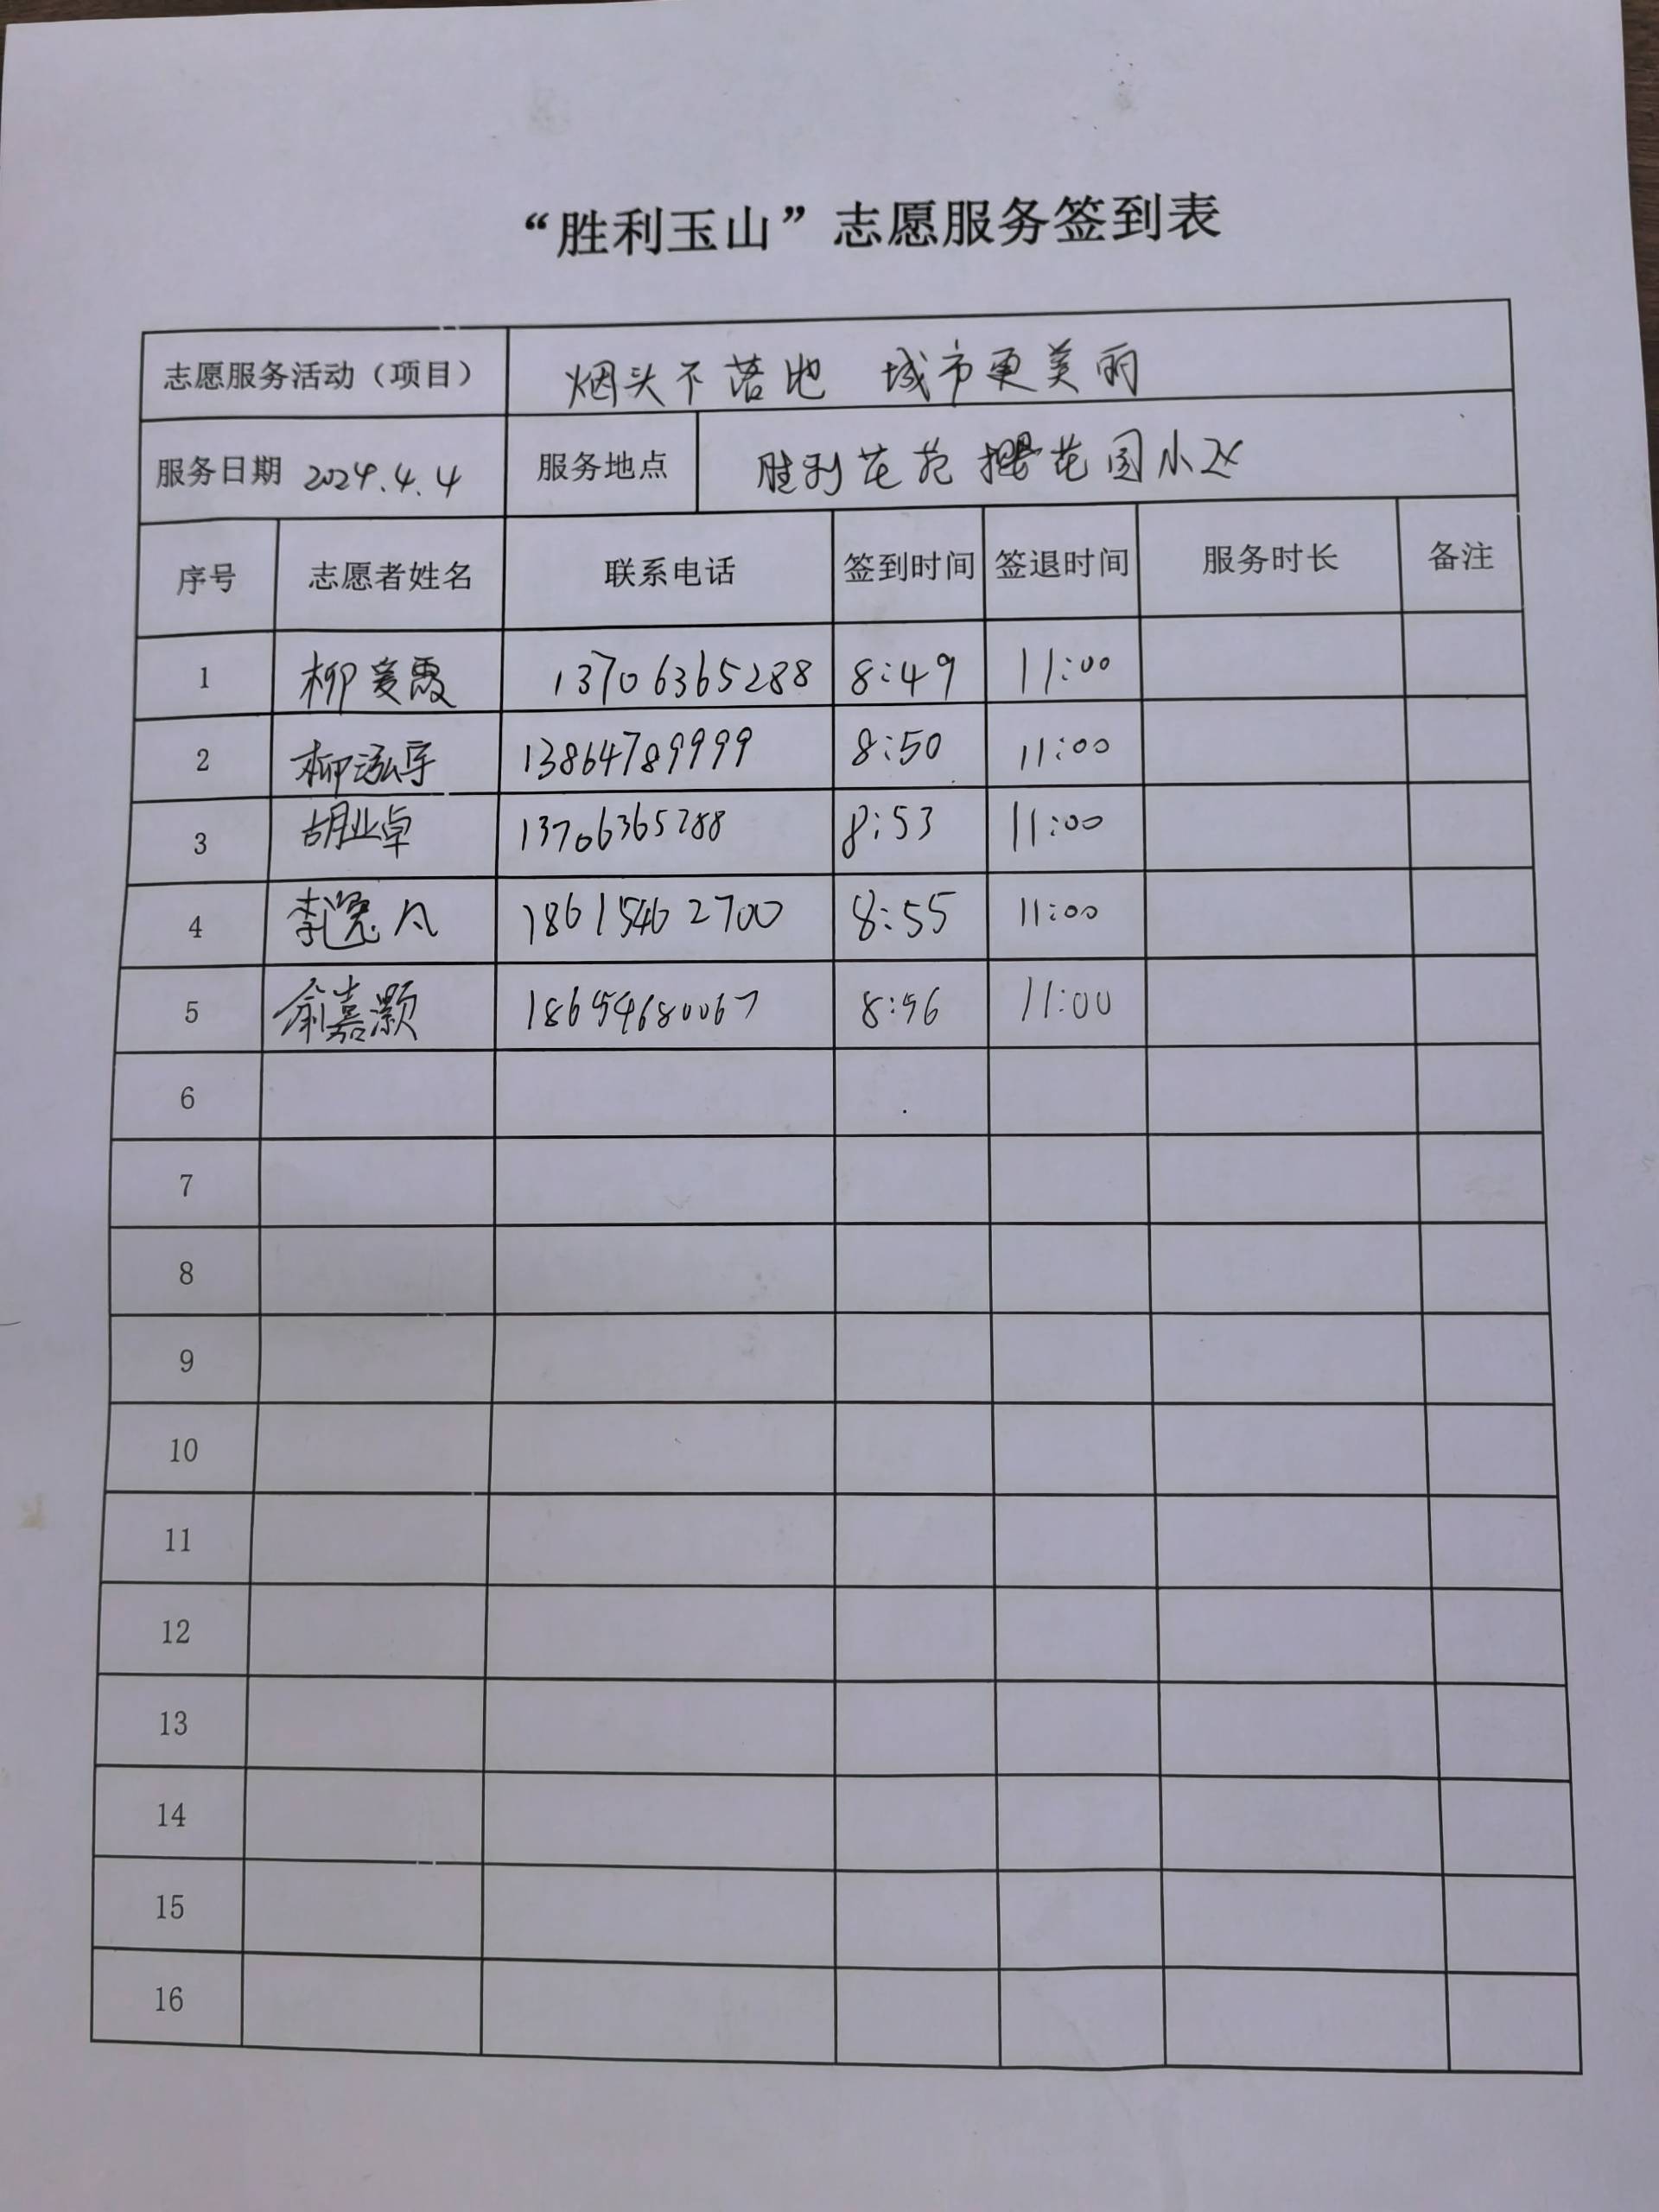 “胜利玉山”志愿服务签到表
志愿服务活动（项目） 烟头不落地 城市更美丽
服务日期 2024.4.4 服务地点 胜利花苑樱花园小区
序号 志愿者姓名 联系电话 签到时间 签退时间 服务时长 备注
1 柳爱霞 13706365288 8:49 11:00
2 柳泓宇 13864789999 8:50 11:00
3 胡业卓 13706365288 8:53 11:00
4 李冕凡 18615462700 8:55 11:00
5 俞嘉灏 18654680067 8:56 11:00
6
7
8
9
10
11
12
13
14
15
16